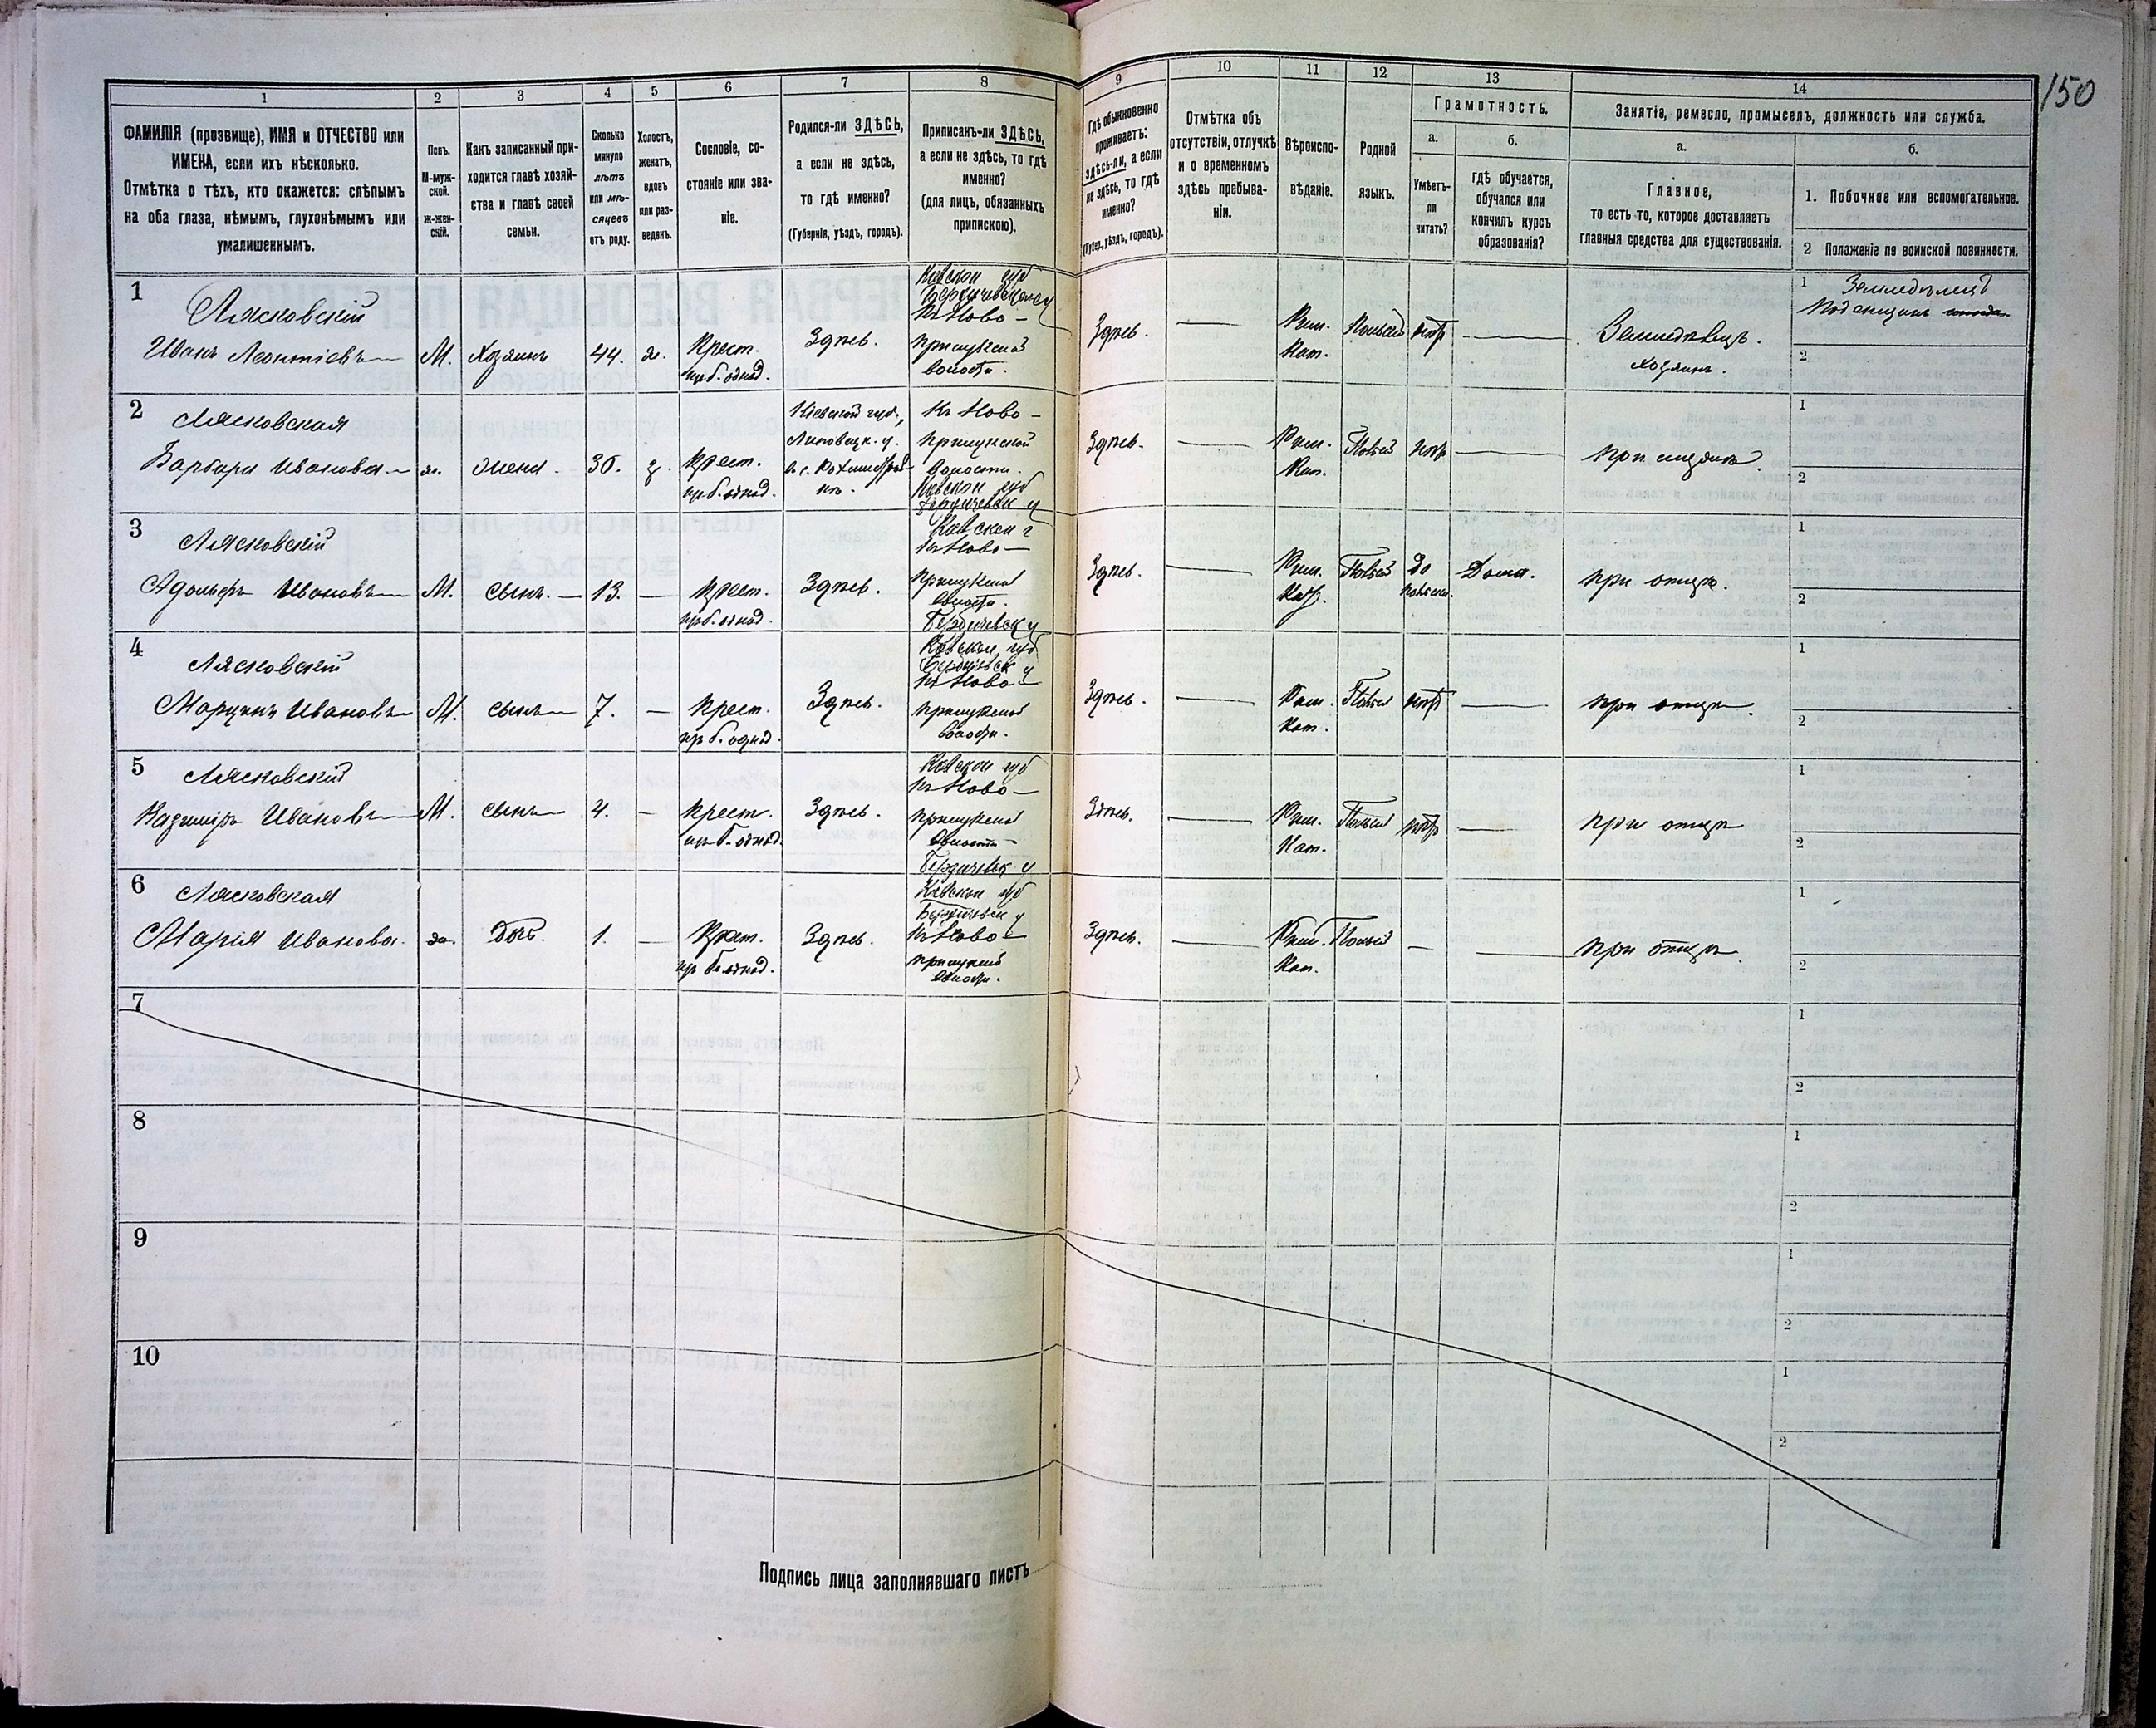 150
1
2
3
4
5
6
7
8
9
10
11
12
13
14
ФАМИЛІЯ (прозвище), ИМЯ и ОТЧЕСТВО или
ИМЕНА, если ихъ нѣсколько.
Отмѣтка о тѣхъ, кто окажется: слѣпымъ
на оба глаза, нѣмымъ, глухонѣмымъ или
умалишеннымъ.
Полъ.
М-муж-
ской.
Ж-жен-
скій.
Какъ записанный при-
ходится главѣ хозяй-
ства и главѣ своей
семьи.
Сколько
минуло
лѣтъ
или мѣ-
сяцевъ
отъ роду.
Холостъ,
женатъ,
вдовъ
или раз-
веденъ.
Сословіе, со-
стояніе или зва-
ніе.
Родился-ли ЗДѢСЬ,
а если не здѣсь,
то гдѣ именно?
(Губернія, уѣздъ, городъ).
Приписанъ-ли ЗДѢСЬ,
а если не здѣсь, то гдѣ
именно?
(для лицъ, обязанныхъ
припискою).
Гдѣ обыкновенно
проживаетъ:
здѣсь-ли, а если
не здѣсь, то гдѣ
именно?
(Губер., уѣздъ, городъ).
Отмѣтка объ
отсутствіи, отлучкѣ
и о временномъ
здѣсь пребыва-
ніи.
Вѣроиспо-
вѣданіе.
Родной
языкъ.
Грамотность.
а.
Умѣетъ-
ли
читать?
б.
гдѣ обучается,
обучался или
кончилъ курсъ
образованія?
Занятіе, ремесло, промыселъ, должность или служба.
а.
Главное,
то есть то, которое доставляетъ
главныя средства для существованія.
б.
1. Побочное или вспомогательное.
2 Положеніе по воинской повинности.
1
Лясковскій
Иванъ Леонтіевъ
М.
Хозяинъ
44.
ж.
Крест.
из б. однод.
Здѣсь.
Кіевской губ
Бердичевскаго у
Къ Ново-
прилукской
волости.
Здѣсь.
Рим.
Кат.
Польскій
нѣтъ
Земледѣлецъ.
хозяинъ.
1
Поденщикъ
2
2
Лясковская
Барбара Иванова
ж.
жена.
36.
з.
Крест.
из б. однод.
Кіевской губ.,
Липовецк. у.
Къ Ново-
прилукской
волости.
Кіевской губ
Бердичевск у
Здѣсь.
Рим.
Кат.
Польскій
нѣтъ
при мужѣ.
1
2
3
Лясковскій
Адольфъ Ивановъ
М.
сынъ.
13.
Крест.
из б. однод.
Здѣсь.
Кіевской г
Къ Ново-
прилукской
волости.
Бердичевск у
Здѣсь.
Рим.
Кат.
Польскій
да
Дома.
при отцѣ.
1
2
4
Лясковскій
Марцинъ Ивановъ
М.
сынъ
7.
Крест.
из б. однод.
Здѣсь.
Кіевской губ
Бердичевск у
Къ Ново-
прилукской
волости.
Здѣсь.
Рим.
Кат.
Польскій
нѣтъ
при отцѣ.
1
2
5
Лясковскій
Казиміръ Ивановъ
М.
сынъ
4.
Крест.
из б. однод.
Здѣсь.
Кіевской губ
Къ Ново-
прилукской
волости
Бердичевск у
Здѣсь.
Рим.
Кат.
Польскій
нѣтъ
при отцѣ
1
2
6
Лясковская
Марія Иванова.
ж.
Дочь.
1.
Крест.
из б. однод.
Здѣсь.
Кіевской губ
Бердичевск у
Къ Ново-
прилукской
волости.
Здѣсь.
Рим.
Кат.
Польскій
при отцѣ.
1
2
7
1
2
8
1
2
9
1
2
10
1
2
Подпись лица заполнявшаго листъ